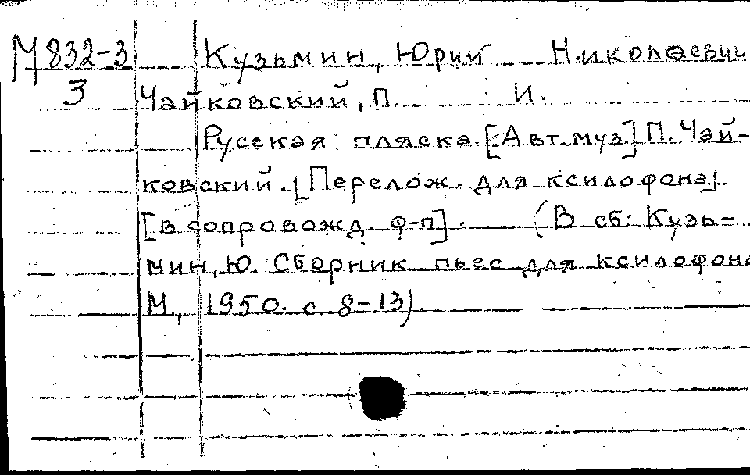 М 832-3 Кузьмин, Юрий Николаевич
3 Чайковский, П. И.
Русская пляска. [Авт. муз.] П. Чай-
ковский. [Перелож. для ксилофона]
[в сопровожд. ф-п]. (В сб: Кузь-
мин, Ю. Сборник пьес для ксилофона
М., 1950. с. 8-13)